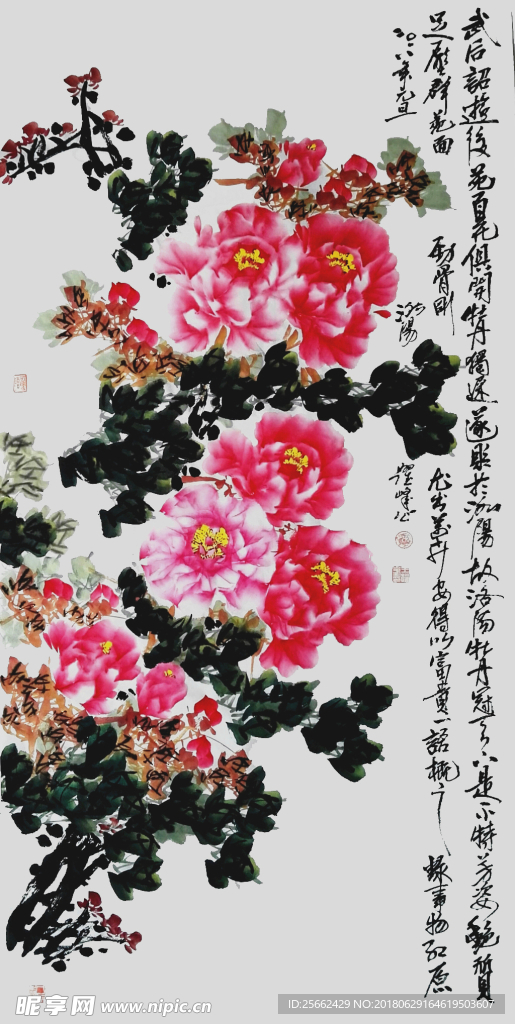 武后詔遊後苑百花俱開牡丹獨遲遂貶於洛陽故洛陽牡丹冠天下是不特芳姿艷質
足壓群葩而勁骨剛心尤出萬卉安得以富貴一語概之 錄事物紀原
二〇一八年元旦
洛陽
昵享网 www.nipic.cn
ID:25662429 NO:20180629164619503607